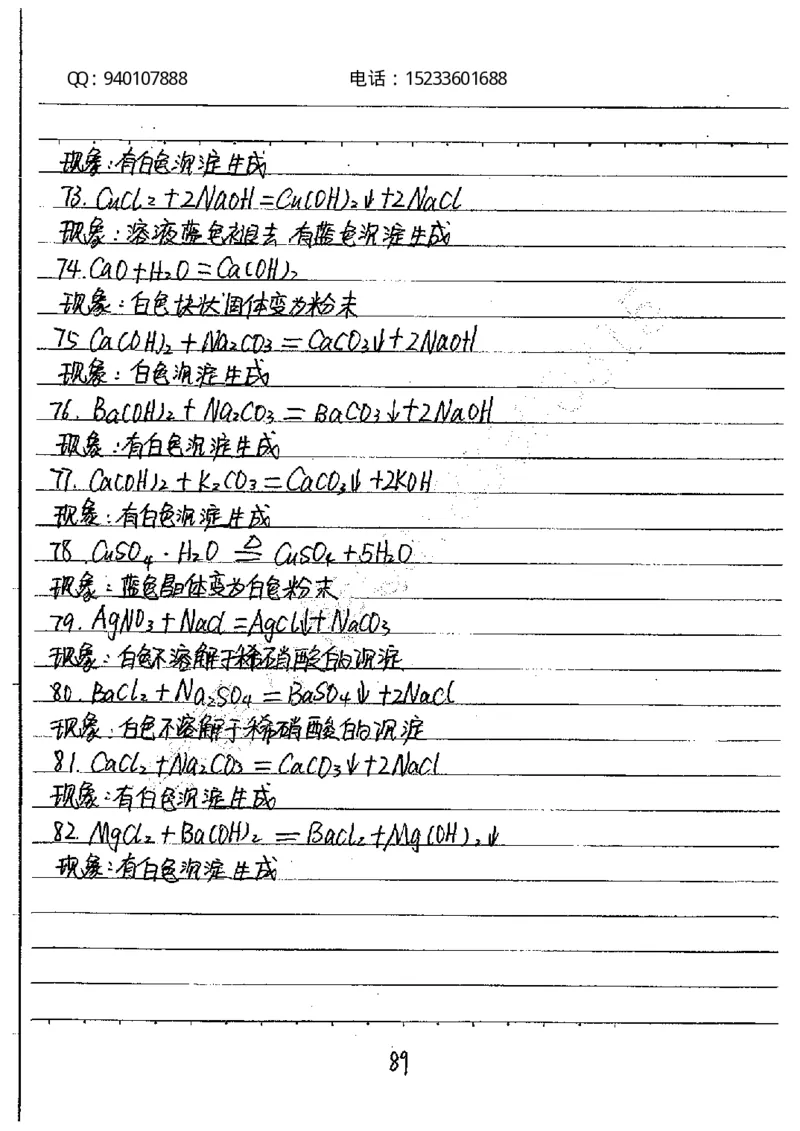 QQ：940107888 电话：15233601688
现象：有白色沉淀生成
73. CuCl₂+2NaOH=Cu(OH)₂↓+2NaCl
现象：溶液蓝色褪去 有蓝色沉淀生成
74. CaO+H₂O=Ca(OH)₂
现象：白色块状固体变为粉末
75 Ca(OH)₂+Na₂CO₃=CaCO₃↓+2NaOH
现象：白色沉淀生成
76. Ba(OH)₂+Na₂CO₃=BaCO₃↓+2NaOH
现象：有白色沉淀生成
77. Ca(OH)₂+K₂CO₃=CaCO₃↓+2KOH
现象：有白色沉淀生成
78 CuSO₄·H₂O ≜ CuSO₄+5H₂O
现象：蓝色晶体变为白色粉末
79. AgNO₃+NaCl=AgCl↓+NaCO₃
现象：白色不溶解于稀硝酸的沉淀
80. BaCl₂+Na₂SO₄=BaSO₄↓+2NaCl
现象：白色不溶解于稀硝酸的沉淀
81. CaCl₂+Na₂CO₃=CaCO₃↓+2NaCl
现象：有白色沉淀生成
82. MgCl₂+Ba(OH)₂=BaCl₂+Mg(OH)₂↓
现象：有白色沉淀生成
89